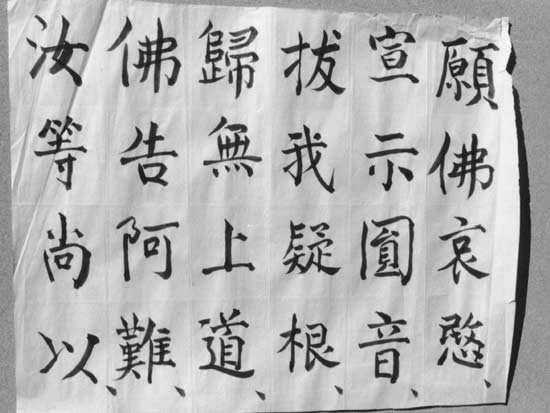 願佛哀愍、
宣示圓音、
拔我疑根、
歸無上道、
佛告阿難、
汝等尚以、